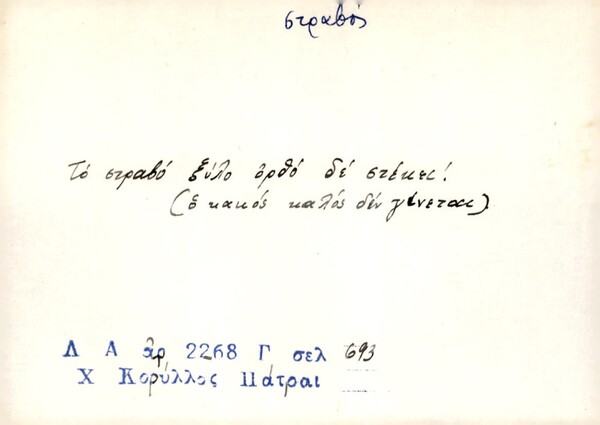 στραβός
Τό στραβό ξύλο ὀρθό δέ στέκει!
(ὁ κακός καλός δέν γίνεται)
Λ Α ἀρ 2268 Γ σελ 693
Χ Κορύλλος Πάτραι